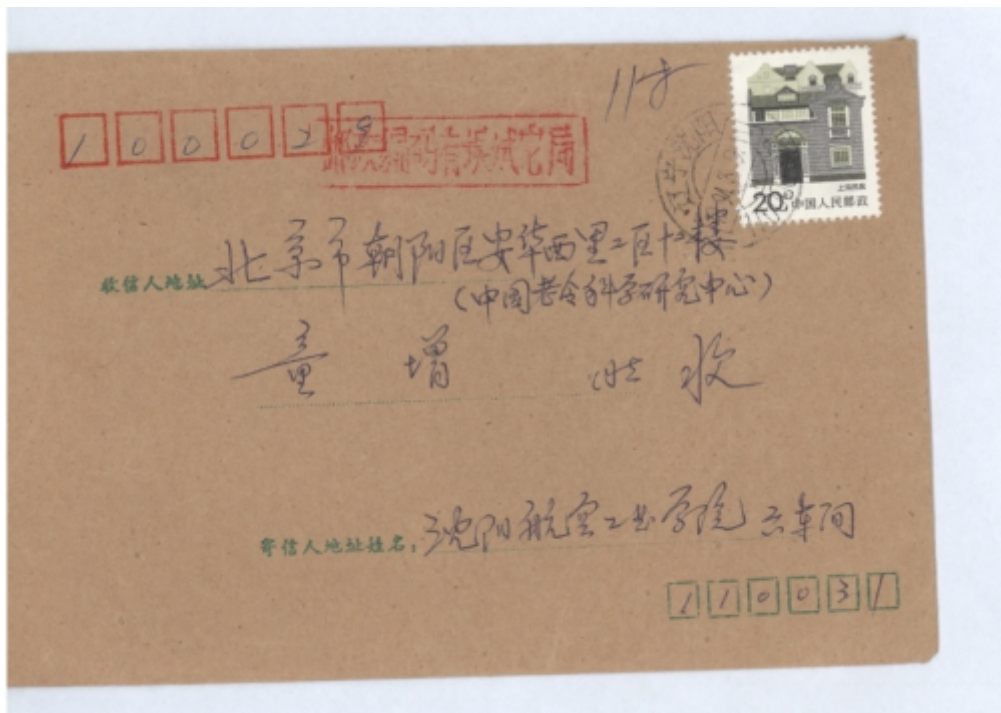 100029
邮政编码有误试它局
上海民居
20分 中国人民邮政
收信人地址 北京市朝阳区安华西里二区十二楼
(中国老令科学研究中心)
童增 收
寄信人地址姓名: 沈阳航空工业学院 六车间
110031